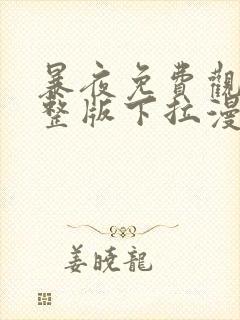 暴夜免費觀
整版下拉漫
姜曉龍